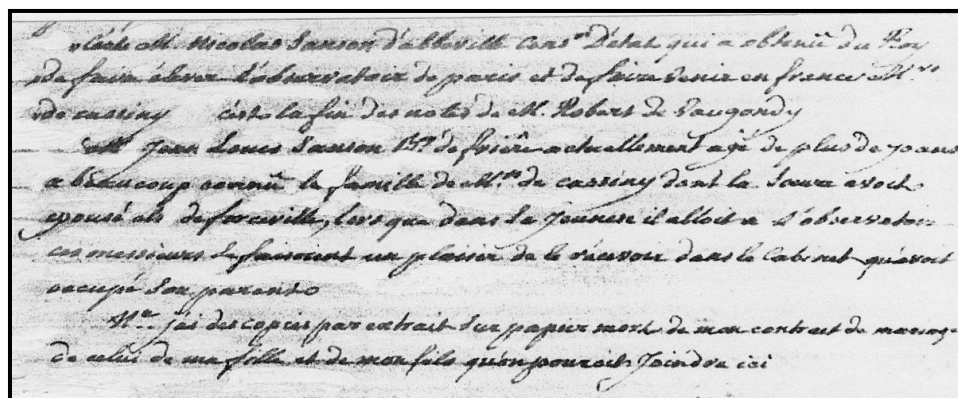 c'este M. Nicolas Sanson d'abbeville Cons.er D'état qui a obtenû du Roy
de faire élever L'observatoir de paris et de faire venir en france M.rs
de cassiny c'este la fin des notes de M. Robert de Vaugondy
M.r Jean Louis Sanson de frière actuellement agé de plus de 70 ans
a beaucoup connû la famille de M.rs de cassiny dont la Sœur avoit
epousé de forceville, Lors que dans Sa Jeunesse il alloit a L'observatoir
ces messieurs Se faisoient un plaisir de le récevoir dans le Cabinet qu'avoit
occupé Son parent
N.a j'ai des copies par extrait Sur papier mort de mon contrait de mariage
de celui de ma fille et de mon fils qu'on pouroit Joindre ici